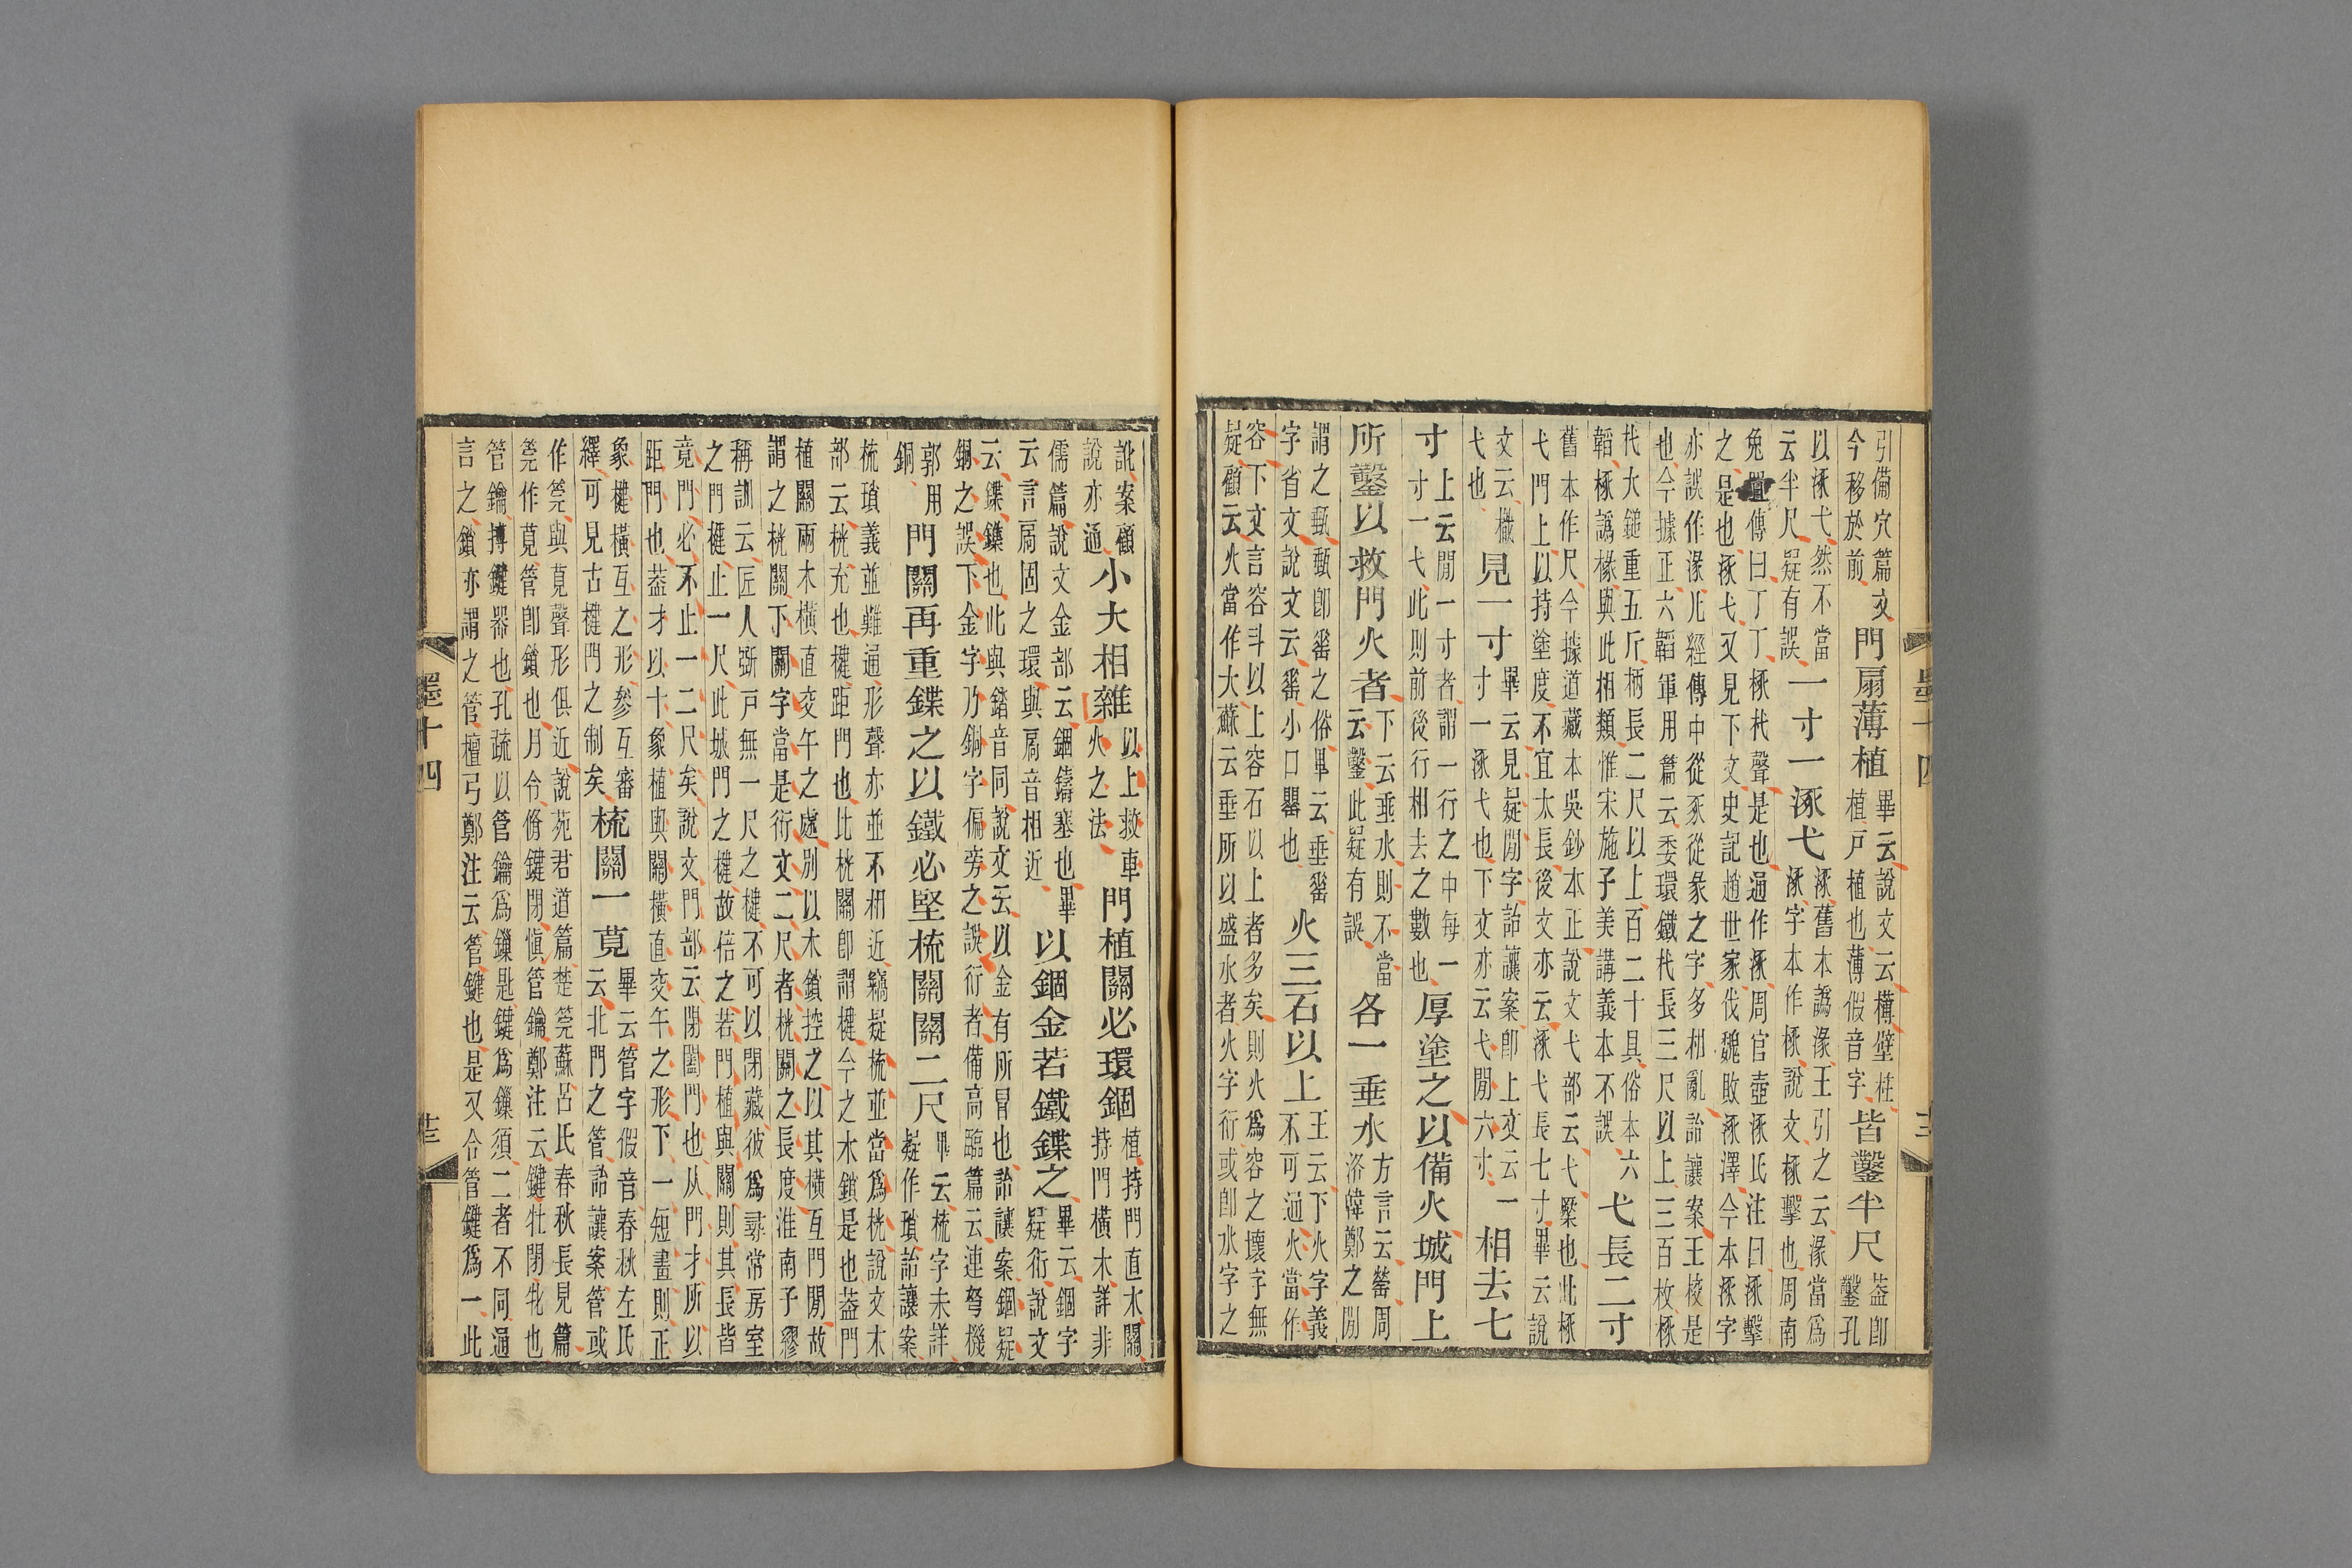 引備穴篇文
今移於前
門扇薄植
畢云說文云欂壁柱
植戶植也薄假音字
皆鑿半尺
葢卽
鑿孔
以涿弋然不當
云半尺疑有誤
一寸一涿弋
涿舊本譌湪王引之云湪當爲
涿字本作椓說文椓擊也周南
兔罝傳曰丁丁椓杙聲是也通作涿周官壺涿氏注曰涿擊
之是也涿弋又見下文史記趙世家伐魏敗涿澤今本涿字
亦誤作湪凡經傳中從豖從彖之字多相亂詒讓案王校是
也今據正六韜軍用篇云委環鐵杙長三尺以上三百枚椓
杙大鎚重五斤柄長二尺以上百二十具俗本六
韜椓譌椽與此相類惟宋施子美講義本不誤
弋長二寸
舊本作尺今據道藏本吳鈔本正說文弋部云弋橜也此椓
弋門上以持塗度不宜太長後文亦云涿弋長七寸畢云說
文云橜
弋也
見一寸
畢云見疑閒字詒讓案卽上文云一
寸一涿弋也下文亦云弋閒六寸
相去七
寸
上云閒一寸者謂一行之中每一
寸一弋此則前後行相去之數也
厚塗之以備火城門上
所鑿以救門火者
下云垂水則不當
云鑿此疑有誤
各一垂水
方言云罃周
洛韓鄭之閒
謂之甀甀卽䍋之俗畢云垂䍋
字省文說文云䍋小口罌也
火三石以上
王云下火字義
不可通火當作
容下文言容斗以上容石以上者多矣則火爲容之壞字無
疑顧云火當作大蘇云垂所以盛水者火字衍或卽水字之
墨十四
訛案顧
說亦通
小大相雜
以上救車
火之法
門植關必環錮
植持門直木關
持門橫木詳非
儒篇說文金部云錮鑄塞也畢
云言扃固之環與扃音相近
以錮金若鐵鍱之
畢云錮字
疑衍說文
云鍱鏶也此與錔音同說文云以金有所冒也詒讓案錮疑
銅之誤下金字乃銅字偏旁之誤衍者備高臨篇云連弩機
郭用
銅
門關再重鍱之以鐵必堅梳關關二尺
畢云梳字未詳
疑作瑣詒讓案
梳瑣義並難通形聲亦並不相近竊疑梳並當爲桄說文木
部云桄充也楗距門也此桄關卽謂楗今之木鎖是也葢門
植關兩木橫直交午之處別以木鎖控之以其橫互門閒故
謂之桄關下關字當是衍文二尺者桄關之長度淮南子繆
稱訓云匠人斲戶無一尺之楗不可以閉藏彼爲尋常房室
之門楗止一尺此城門之楗故倍之若門植與關則其長皆
竟門必不止一二尺矣說文門部云閉闔門也从門才所以
距門也葢才以十象植與關橫直交午之形下一短畫則正
象楗橫互之形參互審
繹可見古楗門之制矣
梳關一莧
畢云管字假音春秋左氏
云北門之管詒讓案管或
作筦與莧聲形俱近說苑君道篇楚筦蘇呂氏春秋長見篇
筦作莧管卽鎖也月令脩鍵閉愼管鑰鄭注云鍵牡閉牝也
管鑰搏鍵器也孔疏以管鑰爲鏁匙鍵爲鏁須二者不同通
言之鎖亦謂之管檀弓鄭注云管鍵也是又合管鍵爲一此
墨十四